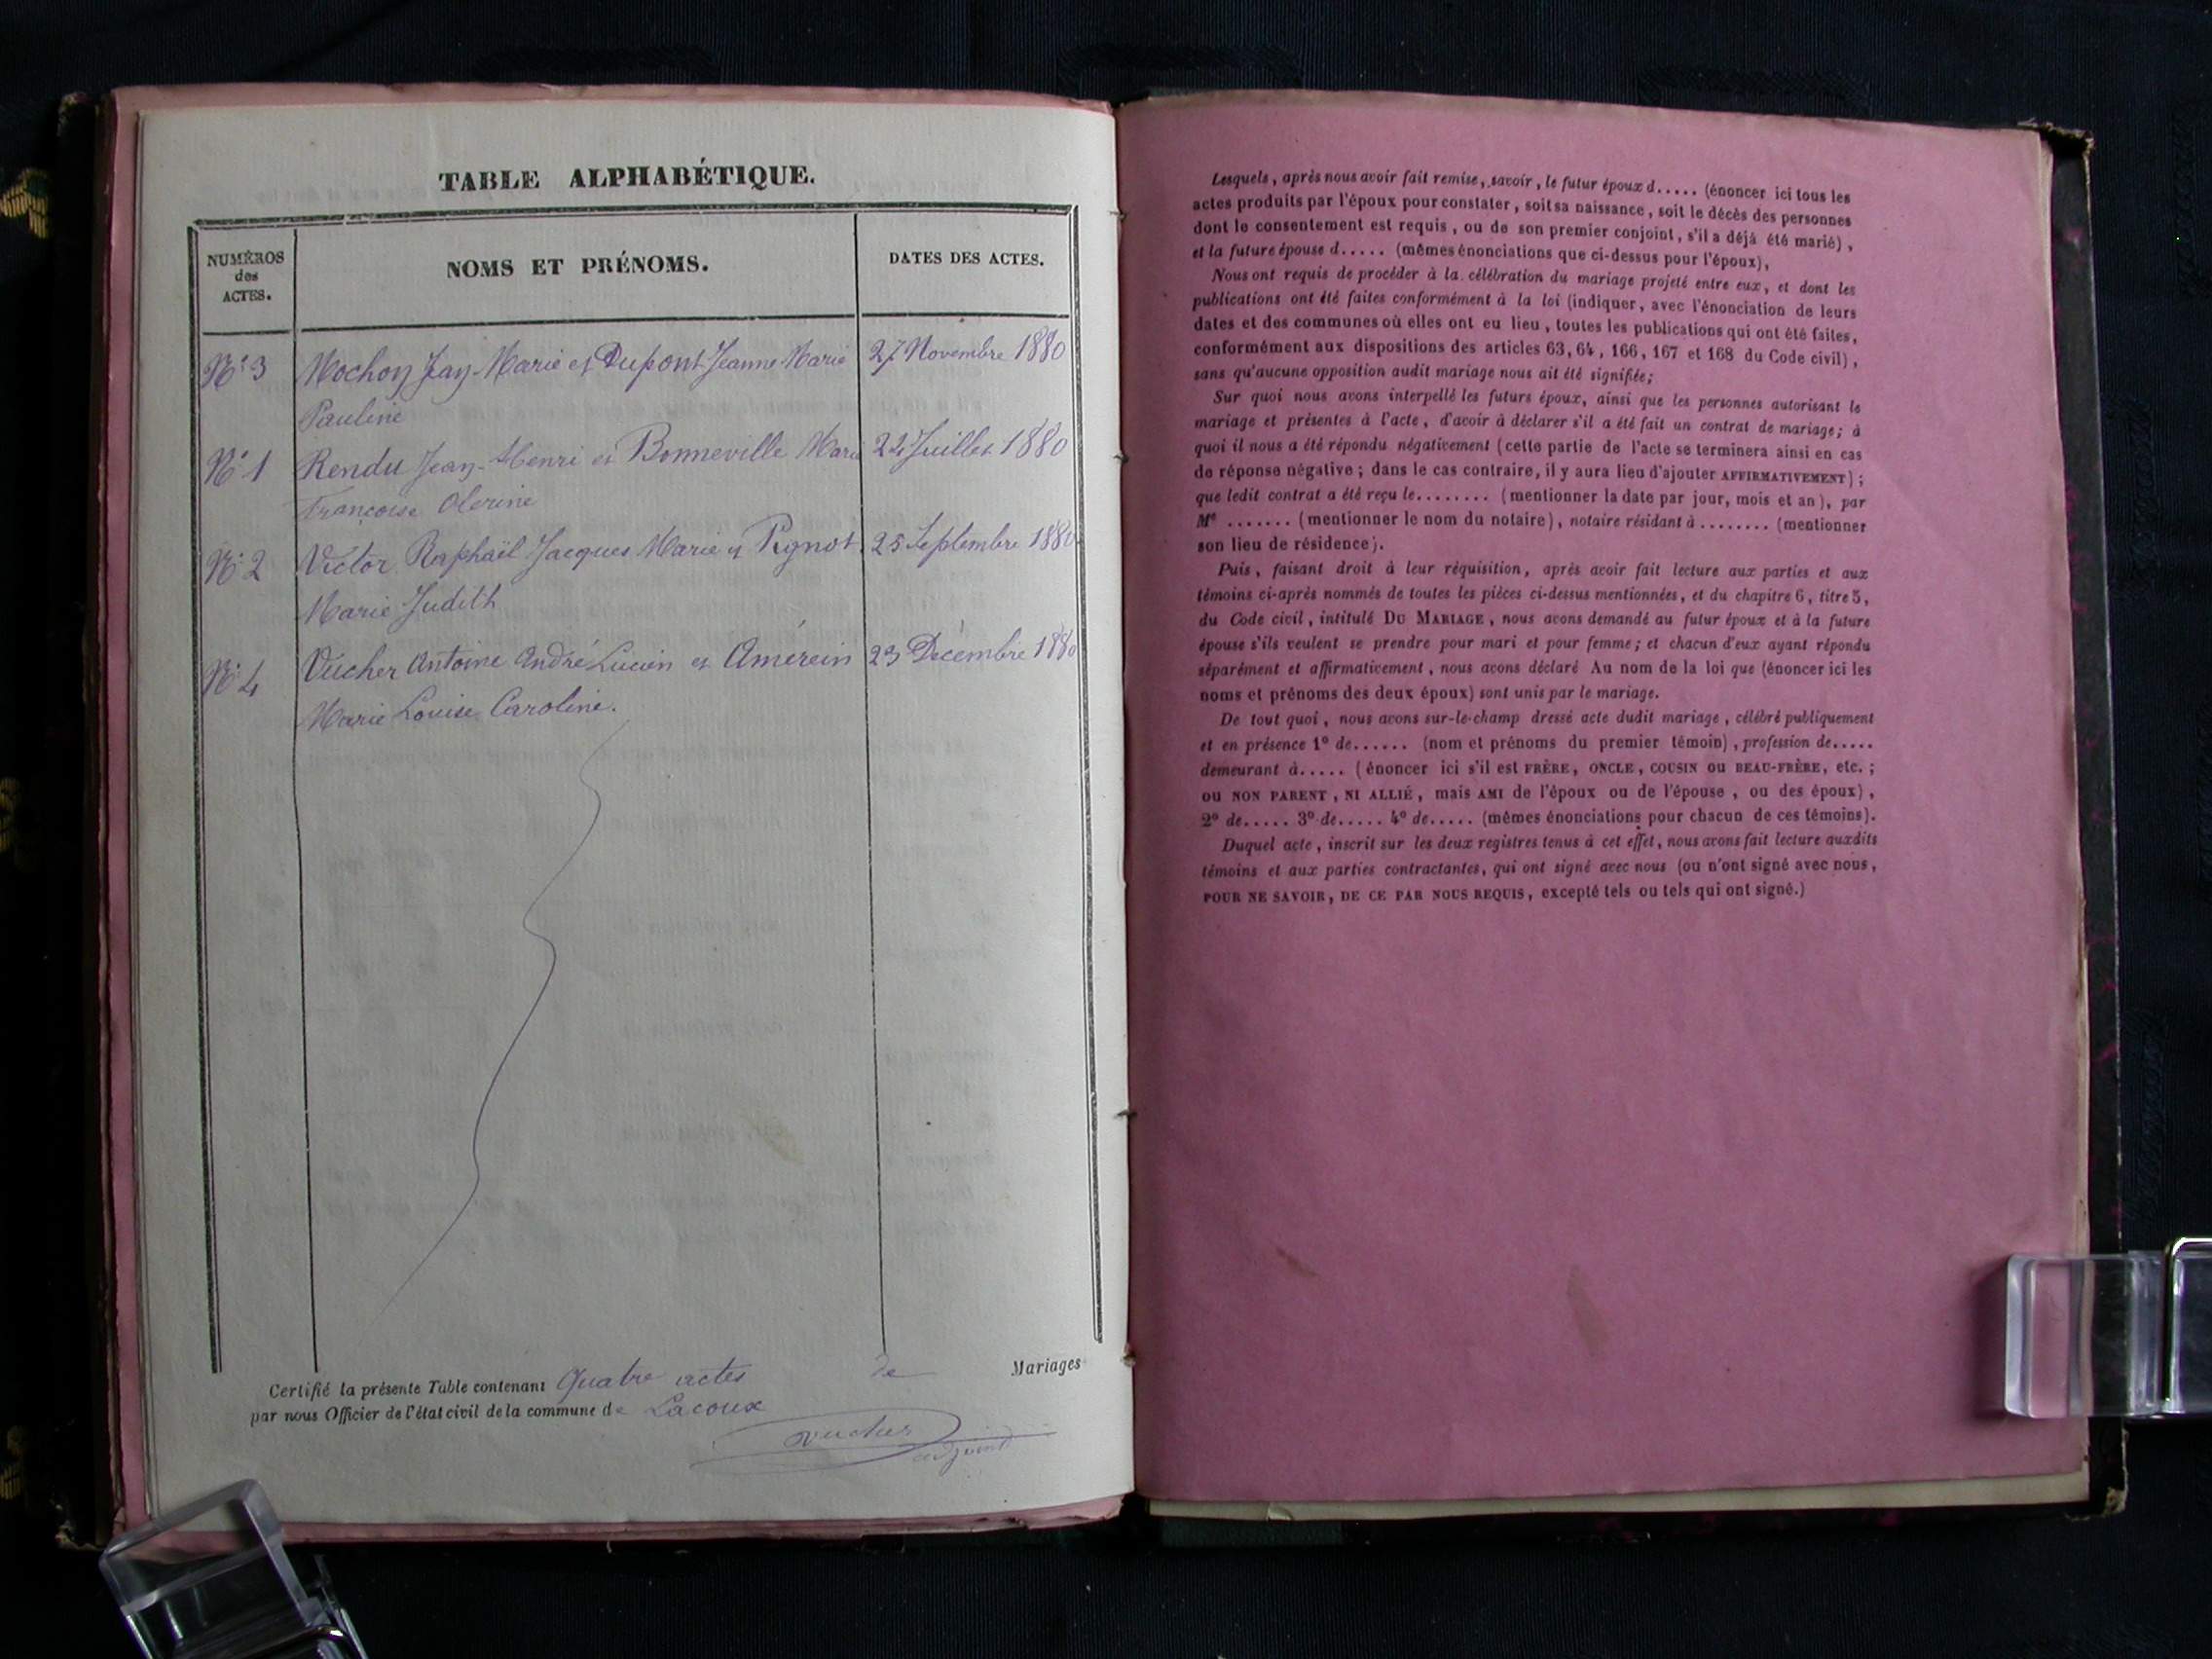 TABLE ALPHABÉTIQUE.
NUMÉROS
des
ACTES.
NOMS ET PRÉNOMS.
DATES DES ACTES.
N° 3 Mochon Jean-Marie et Dupont Jeanne Marie 27 Novembre 1880
Pauline
N° 1 Rendu Jean-Henri et Bonneville Marie Juillet 1880
Françoise
N° 2 Victor Raphaël Jacques Marie et Pignot 25 Septembre 1880
Marie Judith
N° 4 Vucher Antoine André Lucien et Amérein 23 Décembre 1880
Marie Louise Caroline.
Certifié la présente Table contenant Quatre actes de Mariages
par nous Officier de l'état civil de la commune de Lacoux
Vucher
adjoint
Lesquels, après nous avoir fait remise, savoir, le futur époux d..... (énoncer ici tous les
actes produits par l'époux pour constater, soit sa naissance, soit le décès des personnes
dont le consentement est requis, ou de son premier conjoint, s'il a déjà été marié),
et la future épouse d..... (mêmes énonciations que ci-dessus pour l'époux),
Nous ont requis de procéder à la célébration du mariage projeté entre eux, et dont les
publications ont été faites conformément à la loi (indiquer, avec l'énonciation de leurs
dates et des communes où elles ont eu lieu, toutes les publications qui ont été faites,
conformément aux dispositions des articles 63, 64, 166, 167 et 168 du Code civil),
sans qu'aucune opposition audit mariage nous ait été signifiée;
Sur quoi nous avons interpellé les futurs époux, ainsi que les personnes autorisant le
mariage et présentes à l'acte, d'avoir à déclarer s'il a été fait un contrat de mariage; à
quoi il nous a été répondu négativement (cette partie de l'acte se terminera ainsi en cas
de réponse négative; dans le cas contraire, il y aura lieu d'ajouter AFFIRMATIVEMENT);
que ledit contrat a été reçu le........ (mentionner la date par jour, mois et an), par
Me ....... (mentionner le nom du notaire), notaire résidant à ........ (mentionner
son lieu de résidence).
Puis, faisant droit à leur réquisition, après avoir fait lecture aux parties et aux
témoins ci-après nommés de toutes les pièces ci-dessus mentionnées, et du chapitre 6, titre 5,
du Code civil, intitulé DU MARIAGE, nous avons demandé au futur époux et à la future
épouse s'ils veulent se prendre pour mari et pour femme; et chacun d'eux ayant répondu
séparément et affirmativement, nous avons déclaré Au nom de la loi que (énoncer ici les
noms et prénoms des deux époux) sont unis par le mariage.
De tout quoi, nous avons sur-le-champ dressé acte dudit mariage, célébré publiquement
et en présence 1° de...... (nom et prénoms du premier témoin), profession de.....
demeurant à..... (énoncer ici s'il est FRÈRE, ONCLE, COUSIN ou BEAU-FRÈRE, etc.;
ou NON PARENT, NI ALLIÉ, mais AMI de l'époux ou de l'épouse, ou des époux),
2° de..... 3° de..... 4° de..... (mêmes énonciations pour chacun de ces témoins).
Duquel acte, inscrit sur les deux registres tenus à cet effet, nous avons fait lecture auxdits
témoins et aux parties contractantes, qui ont signé avec nous (ou n'ont signé avec nous,
POUR NE SAVOIR, DE CE PAR NOUS REQUIS, excepté tels ou tels qui ont signé.)